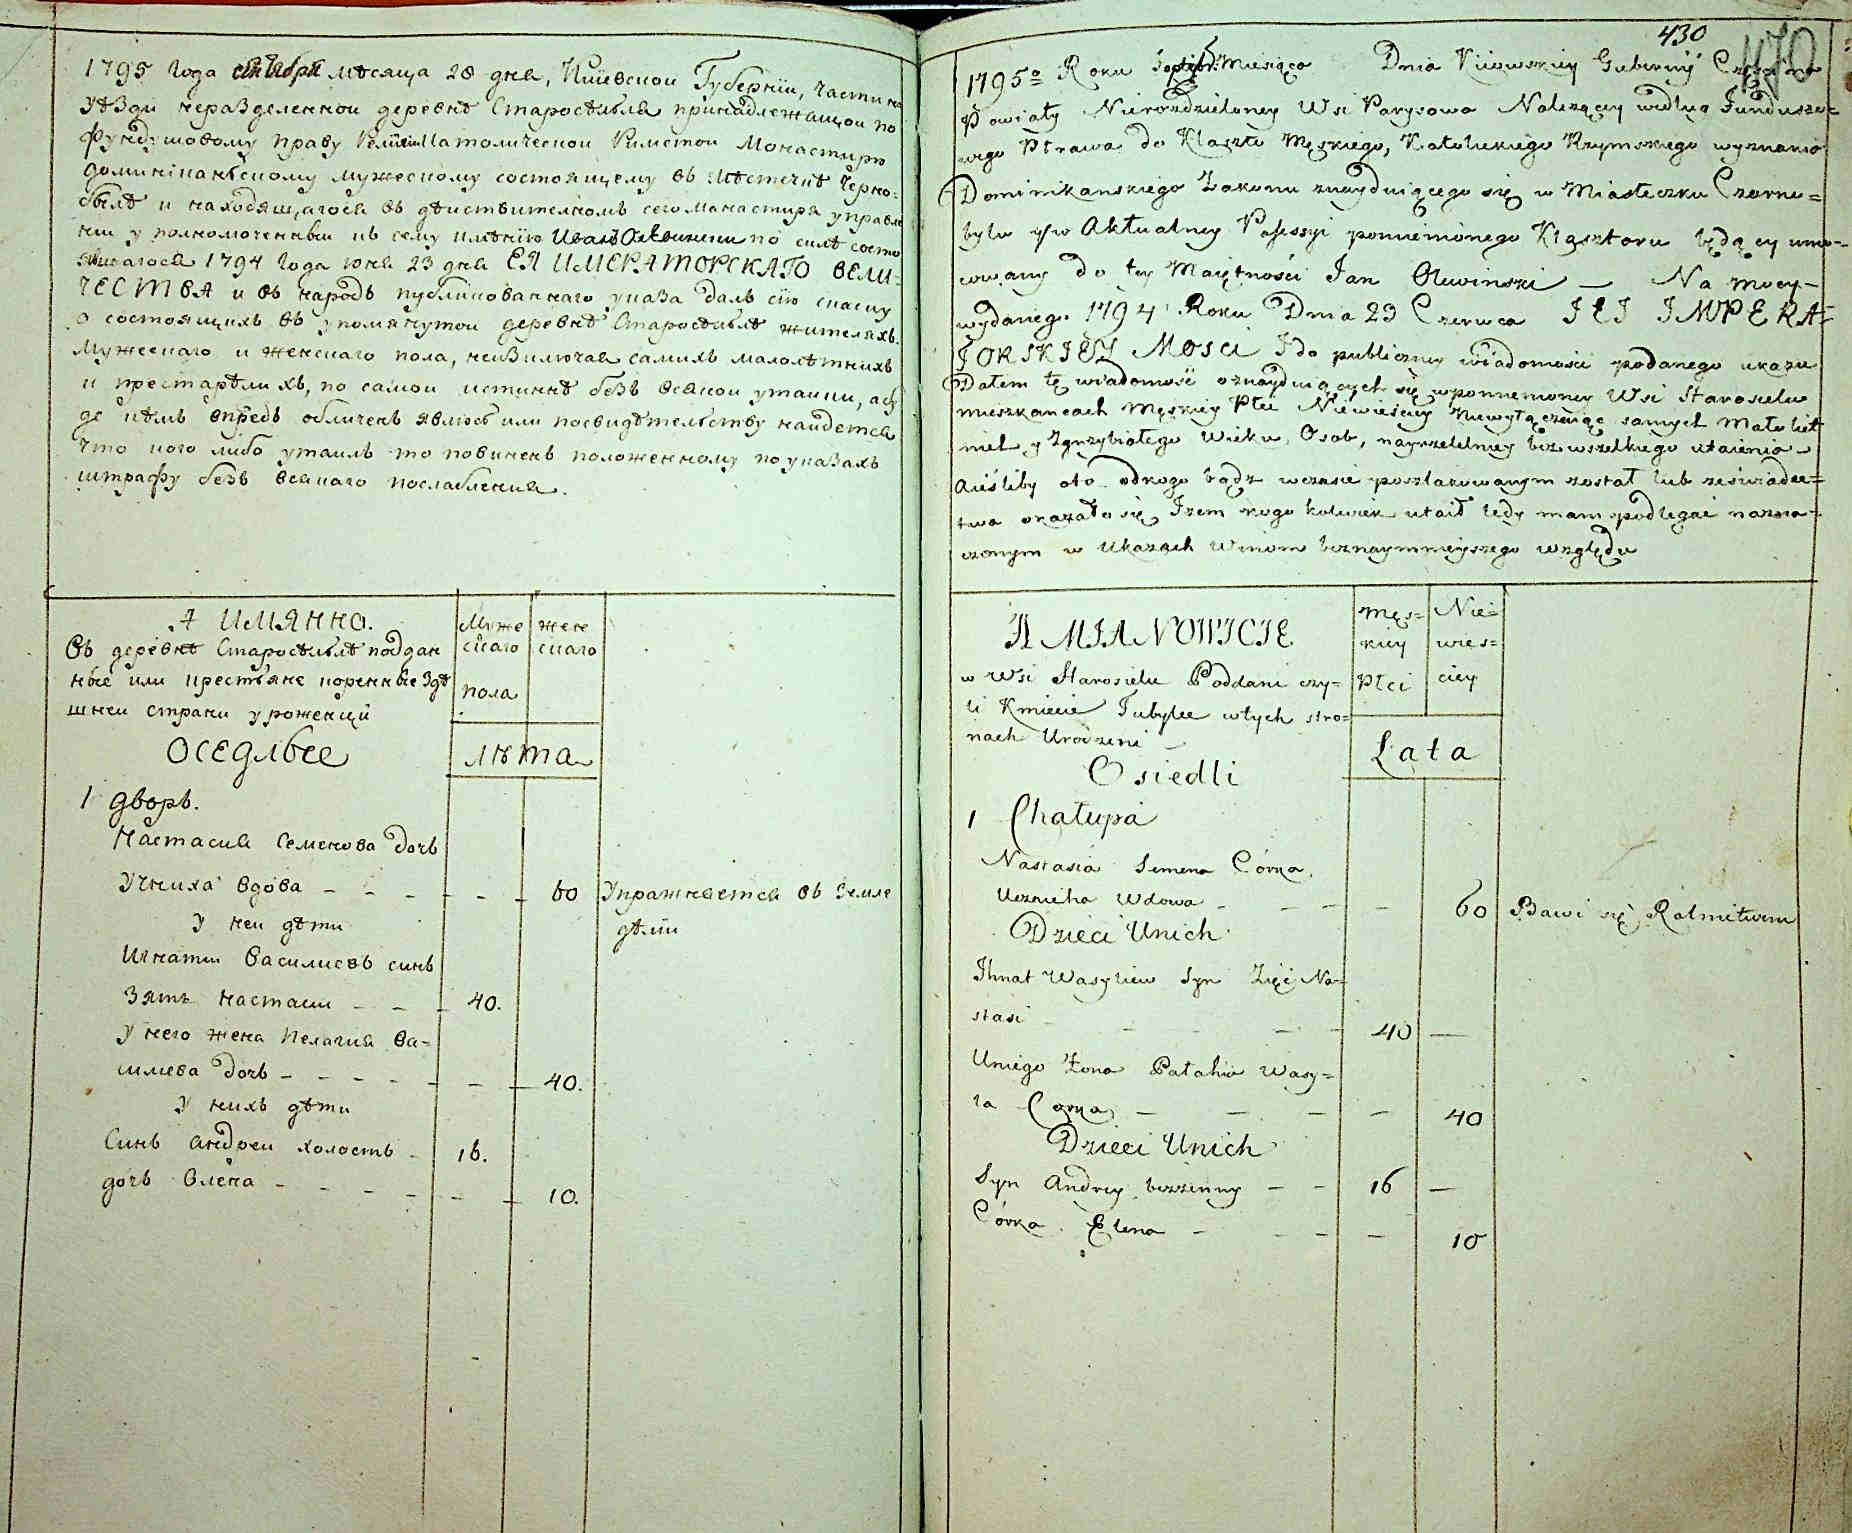 1795 года сентября мѣсяца 28 дня, Киевской Губерніи, части на
Уѣзди неразделенной деревнѣ Старосѣлья принадлежащой по
фундушовому праву католической Римской Монастирю
доминіканскому мужескому состоящему въ мѣстечкѣ Черно-
былѣ и находящагося въ дѣйствителномъ сего монастиря управле
нии уполномоченный къ сему имѣнію Иванъ по силѣ состо
явшагося 1794 года юня 23 дня ЕЯ ИМПЕРАТОРСКАГО ВЕЛИ-
ЧЕСТВА и въ народъ публикованнаго указа далъ сію скаску
о состоящихъ въ упомянутой деревнѣ Старосѣльѣ жителяхъ
мужескаго и женскаго пола, не включая самихъ малолѣтнихъ
и престарѣлихъ, по самой истиннѣ безъ всякой утайки, а бу
де кѣмъ впредь обличенъ явлюсь или по свидѣтельству найдется
что кого либо утаилъ то повиненъ положенному по указахъ
штрафу безъ всякаго послабления.
А ИМЯННО.
Въ деревнѣ Старосѣльѣ поддан
ные или крестьяне коренные здѣ
шней страни уроженци
Муже
скаго
пола
жен
скаго
ОСЕДЛЫЕ
лѣта
1 дворъ.
Настасия Семенова дочь
Учниха вдова - - - - - 60 Упражняется въ земле
дѣлии
У неи дѣти
Игнатии Василиевъ синъ
Зять настасии - - - 40.
У него жена Пелагия Ва-
силиева дочь - - - - - - - 40.
У нихъ дѣти
Синъ андреи холостъ - 16.
дочь Олена - - - - - - 10.
430
470
1795о Roku Septebr: Miesiąca Dnia Kiiowskiey Gubernij Części na
Powiaty Nierozdzieloney Wsi Parysowa Nalezącey według Funduszo-
wego Prawa do Klaszto Męskiego, Katolickiego Rzymskiego wyznania
Dominikanskiego Zakonu znayduiącego się w Miasteczku Czarno-
bylu y w Aktualney Possessyi pomienionego Klasztoru będący umo-
cowany do tey Maiętności Jan Olewinski — Na mocy
wydanego 1794 Roku Dnia 23 Czerwca JEJ IMPERA-
TORSKIEY Mosci I do publiczney wiadomości podanego ukazu
Dałem tę wiadomość o znayduiących się wpomnieoney Wsi Starosielu
mieszkancach Męskiey Płci Niewieściey niewyłączaiąc samych Mało let
nich y Zgrzybiałego Wieku, Osob, nayrzetelniey bez wszelkiego utaienia
Aieśliby oto odkogo bądz wczasie poszlakowanym został lub zeświadec-
twa okazało się Iżem kogo kolwiek utaił tedy mam podlegać nazna-
czonym w Ukazach Winom beznaymnieyszego względu
A MIANOWICIE
w Wsi Starosielu Poddani czy-
li Kmiecie Tubylce wtych stro-
nach Urodzeni —
Męs-
kiey
Płci
Nie-
wieś-
ciey
Osiedli
Lata
1 Chałupa
Nastasia Semena Córka
Ucznicha Wdowa - - - - 60 Bawi się Rolnictwem
Dzieci Unich
Ihnat Wasyliew Syn Zięć Na-
stasi - - - - - 40 —
Uniego Żona Pałahia Wasy-
la Corka - - - - 40
Dzieci Unich
Syn Andrey bezżenny - - 16 —
Córka Elena - - - - 10